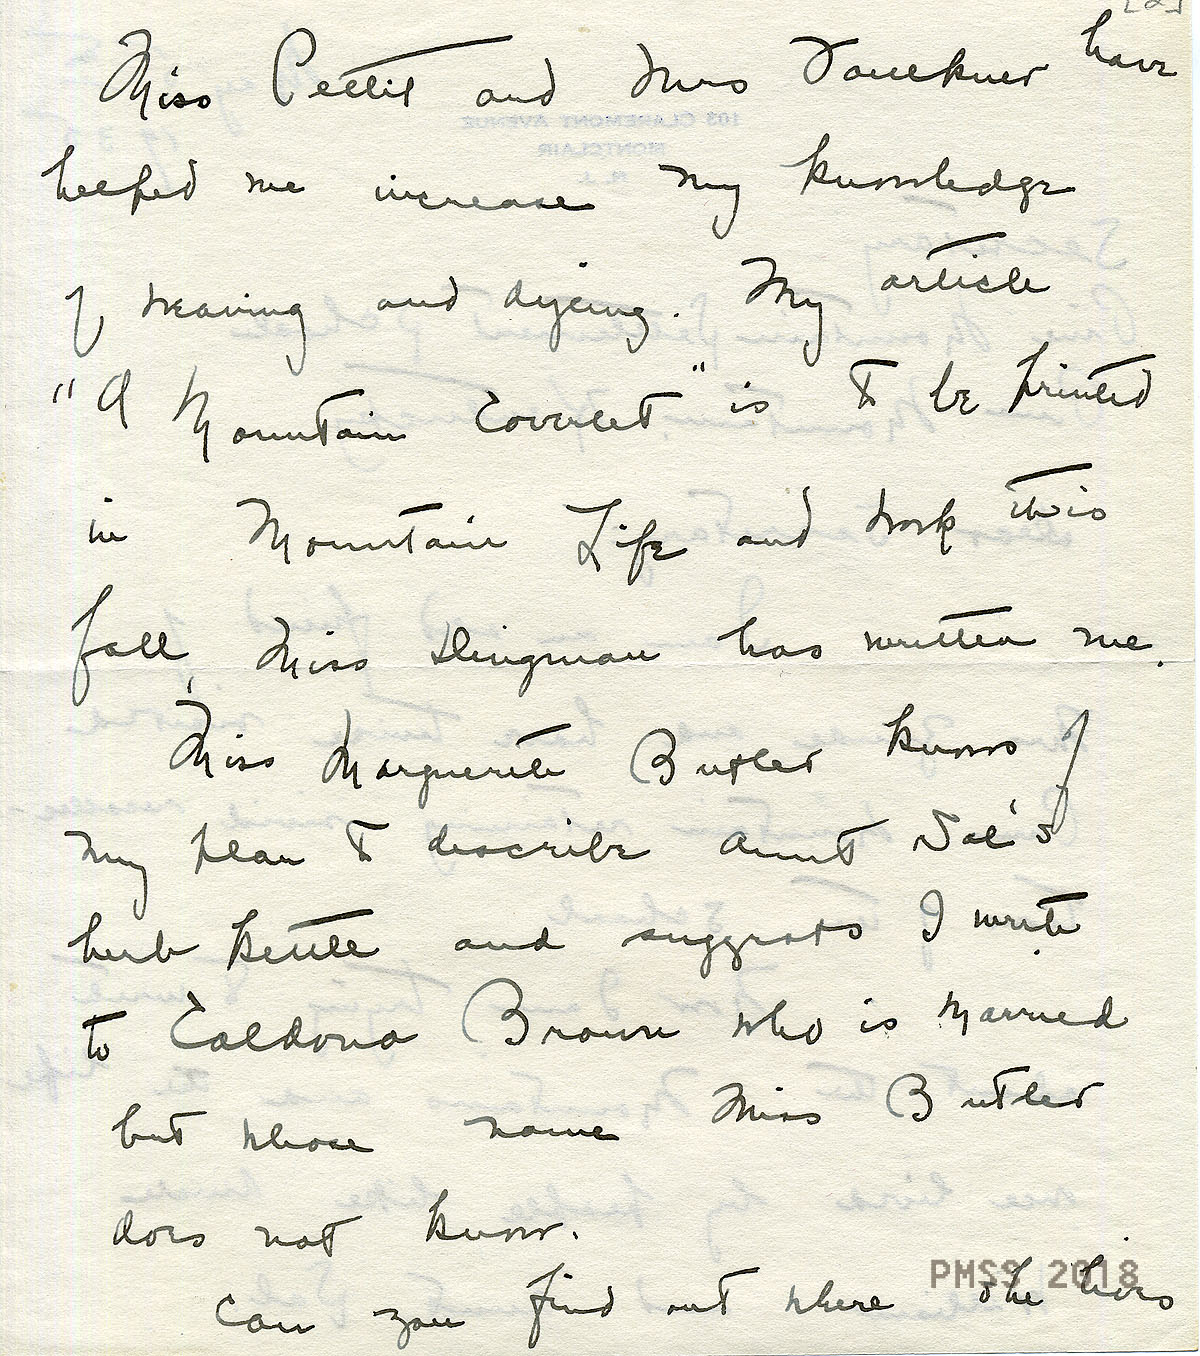 [2]
Miss Pettit and Mrs Faulkner have
helped me increase my knowledge
of weaving and dyeing. My article
"A Mountain Coverlet" is to be printed
in Mountain Life and Work this
fall, Miss Dingman has written me.
Miss Marguerite Butler knows of
my plan to describe Aunt Sal's
herb kettle and suggests I write
to Caldona Brown who is married
but whose name Miss Butler
does not know.
Can you find out where she lives
PMSS 2018